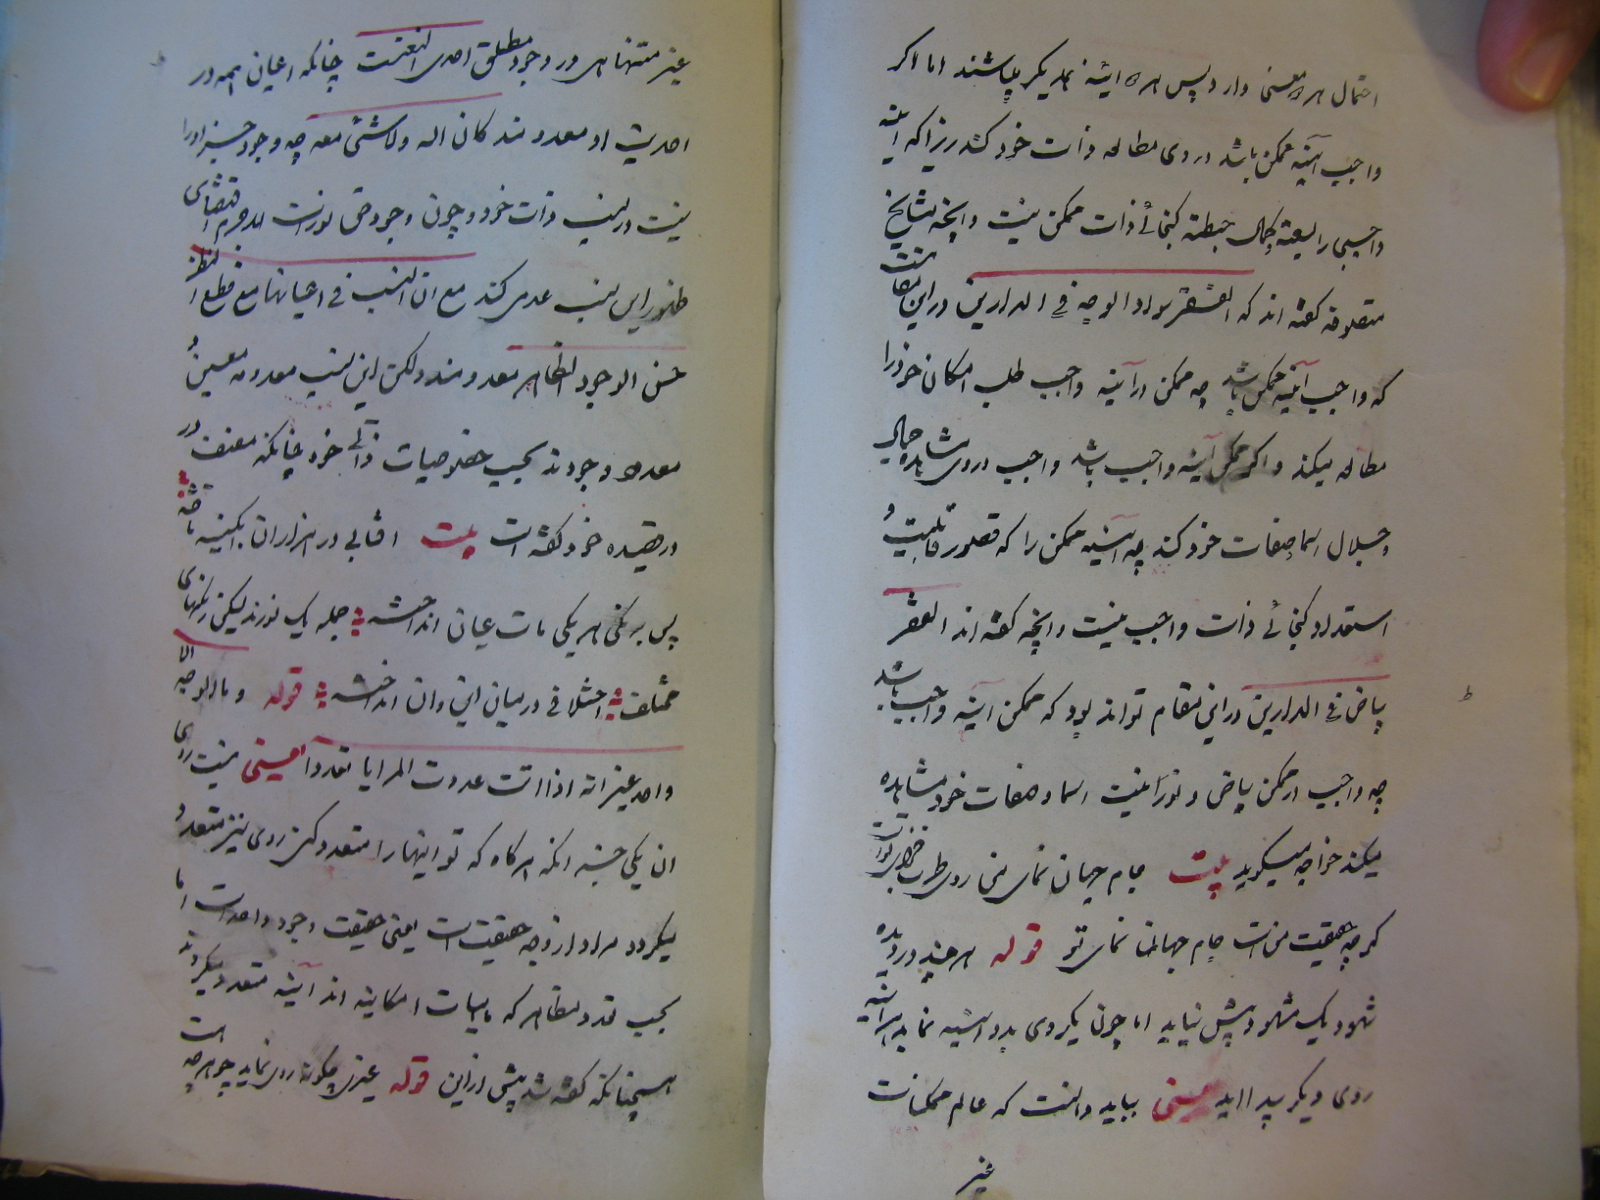 احتمال هر دو معنی دارد پس هر دو آینه یکدیگر باشند اما اگر
واجب آینه ممکن باشد در وی مطالعه ذات خود کند زیرا که آینه
واجبی را ذات ممکن نیست و آنچه مشایخ
متصوفه گفته اند که الفقر سواد الوجه فی الدارین در این مقام است
که واجب آینه ممکن باشد چه ممکن در آینه واجب طلب امکان خود را
مطالعه میکند و اگر ممکن آینه واجب باشد واجب در وی مشاهده جمال
و جلال اسما و صفات خود کند چه آینه ممکن را که قصور قابلیت و
استعداد کنجائی ذات واجب نیست و آنچه گفته اند الفقر
بیاض فی الدارین در این مقام تواند بود که ممکن آینه واجب باشد
چه واجب در ممکن بیاض و نورانیت اسما و صفات خود مشاهده
میکند خواجه میگوید بیت جام جهان نمای من روی طرب فزای تو است
گرچه حقیقت من است جام جهان نمای تو قوله هر چند در دیده
شهود یک مشهود بیش نیاید اما چون یک روی بدو آینه نماید هر آینه
روی دیگر پیدا آید یعنی بباید دانست که عالم ممکنات
غیر
غیر متناهی در وجود مطلق احدی النعت چنانکه اعیان همه در
احدیت او معدومند کان الله و لا شیء معه چه وجود جز او را
نیست در ذات خود و چون وجود حق نور است لا جرم اقتضای
ظهور این نسب عدمی کند مع ان النسب فی اعیانها مع قطع النظر
عن الوجود الظاهر معدومند ولکن این نسب معدومه معین و
معد وجودند بحسب خصوصیات ذاتی خود چنانکه مصنف در
در قصیده خود گفته است بیت آفتابی در هزاران آبگینه تافته
پس برنگی هر یکی تاب عیان انداخته جمله یک نورند لیکن رنگهای
مختلف اختلافی در میان این و آن انداخته قوله و ما الوجه الا
واحد غیر انه اذا انت عددت المرایا تعددا یعنی نیست روی
الا یکی جز آنکه هر گاه که تو آینها را متعدد کنی روی نیز متعدد
میگردد مراد از وجه حقیقت است یعنی حقیقت وجود واحد است اما
بحسب تعدد مظاهر که ماهیات امکانیه اند آینه متعدد میگردند
همچنانکه گفته شد پیش از این قوله غیری چگونه روی نماید چو هر چه هست